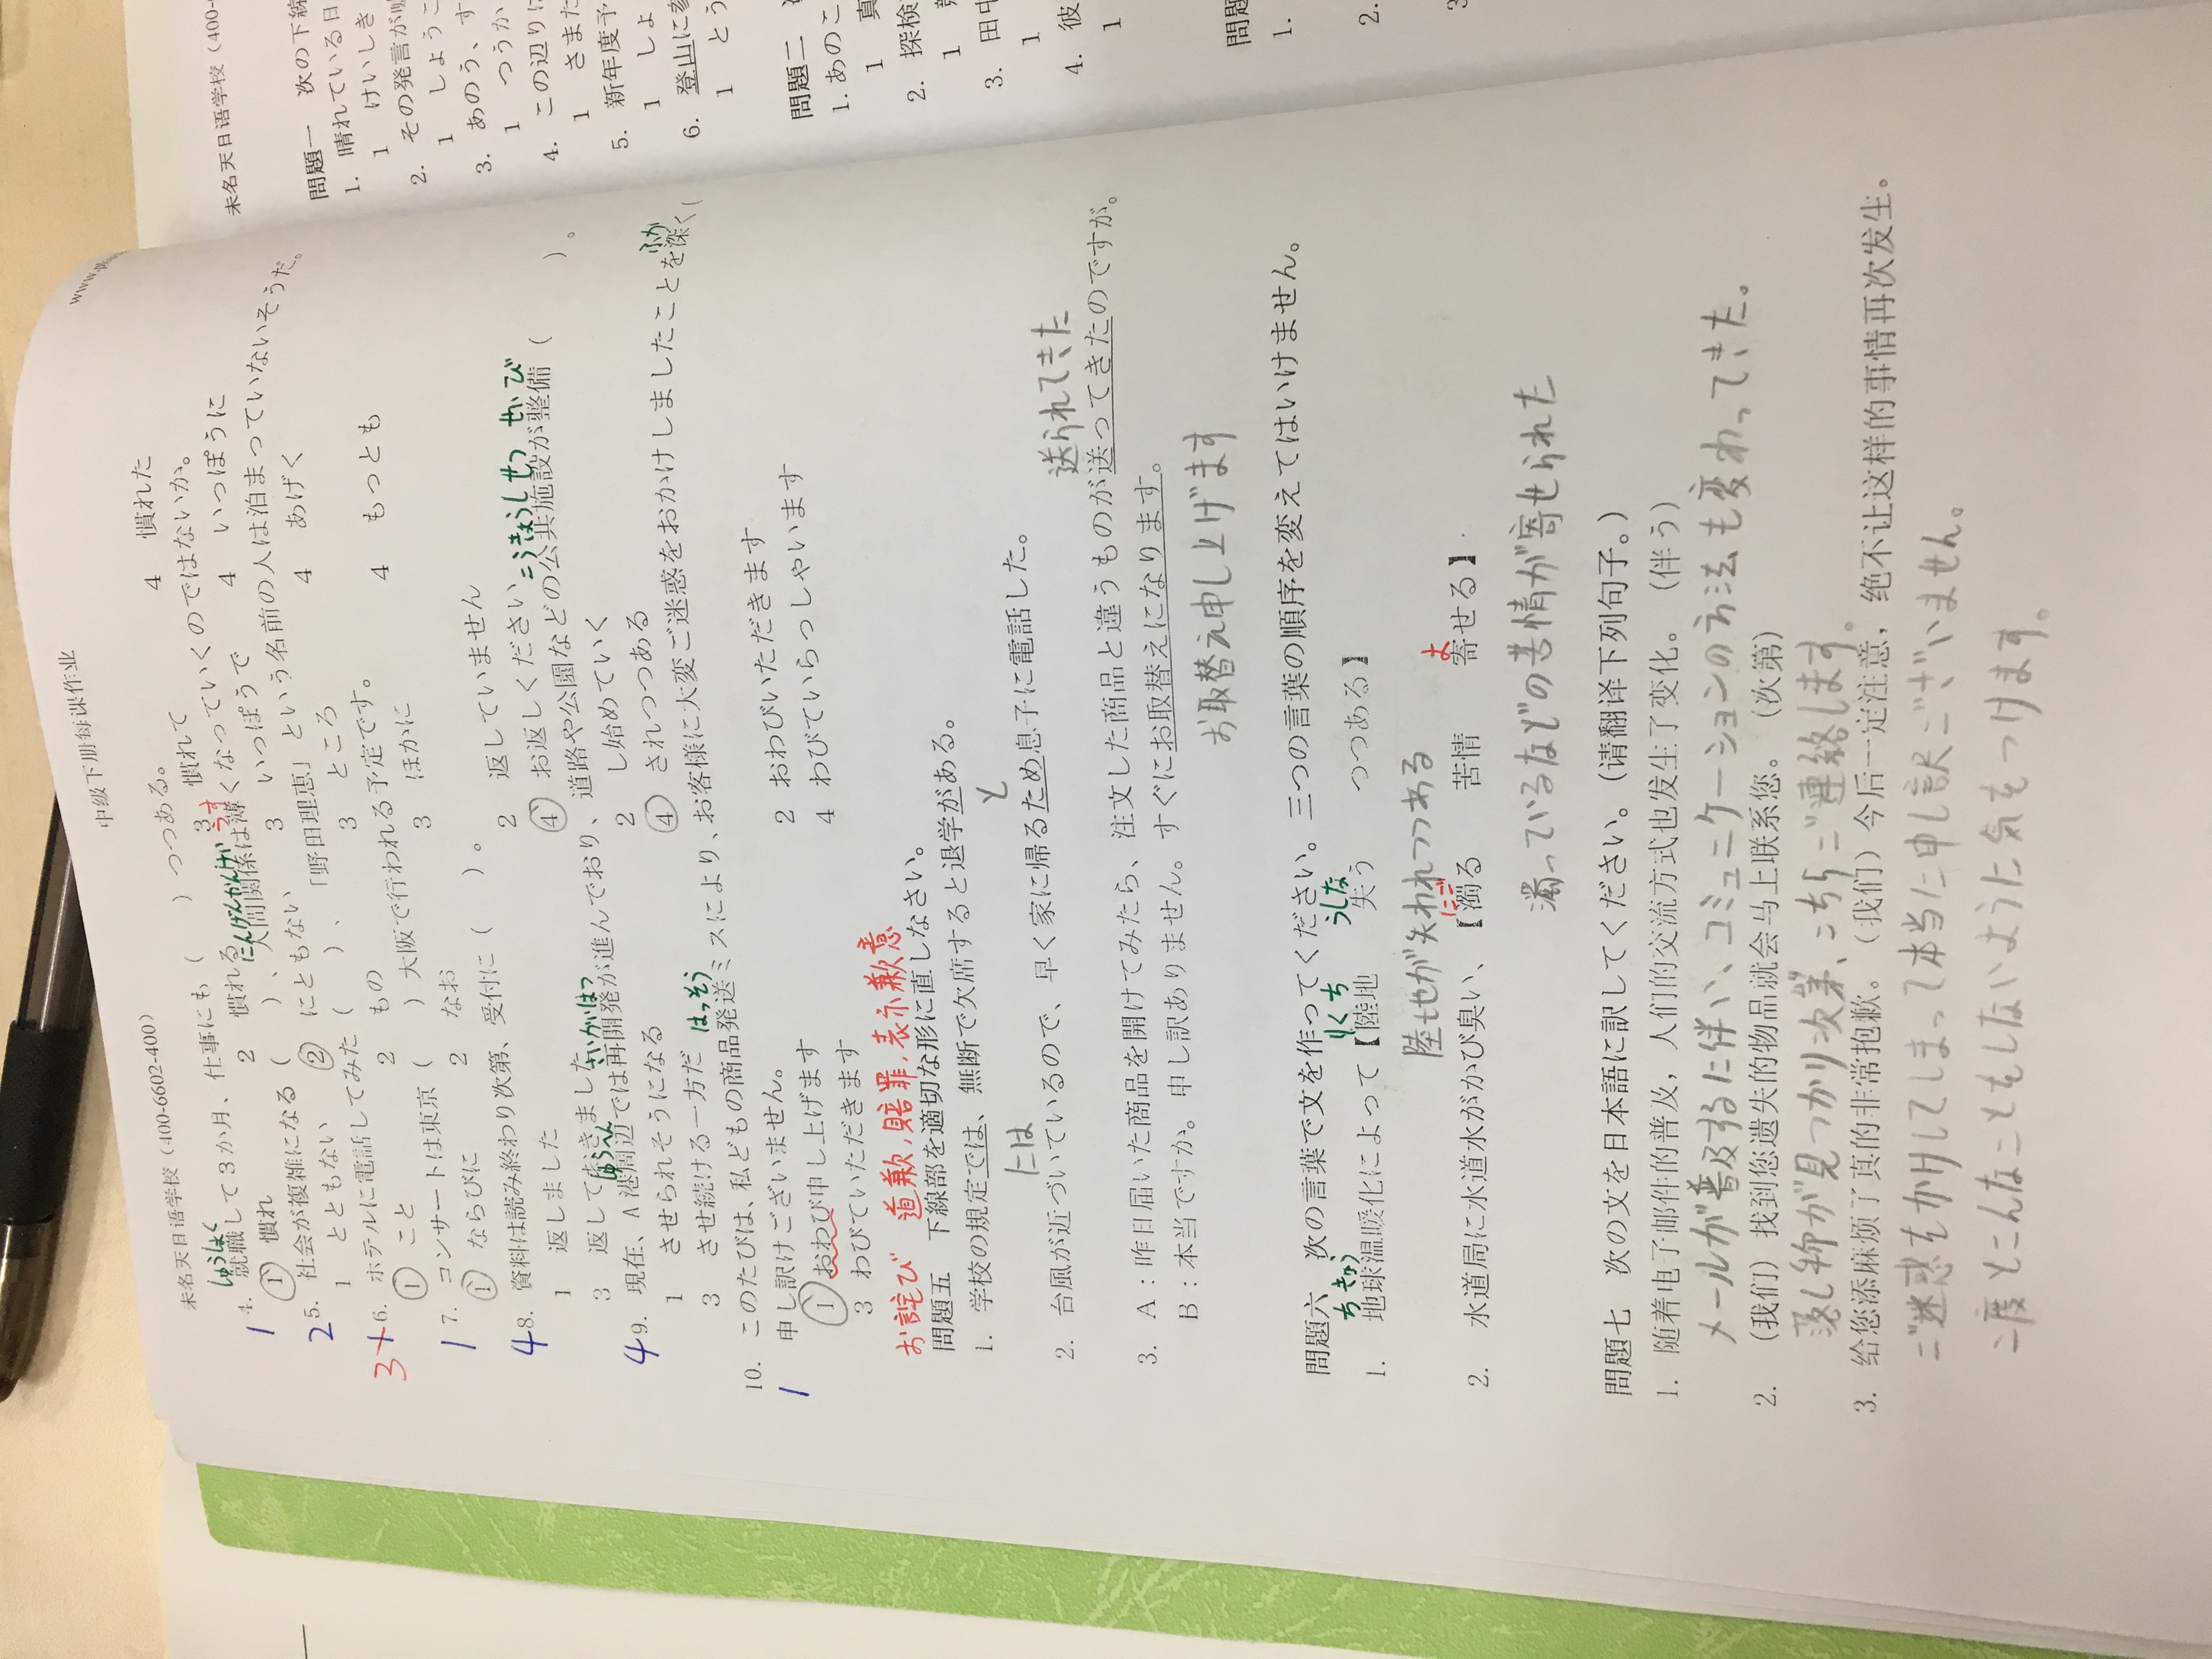 未名天日语学校(400-6602-400)
中级下册每课作业
しゅうしょく
4. 就職して3か月、仕事にも( )つつある。
1
① 慣れ 2 慣れる 3 慣れて 4 慣れた
にんげんかんけい うす
5. 社会が複雑になる( )、人間関係は薄くなっていくのではないか。
2
1 とともない ② にともない 3 いっぽうで 4 いっぽうに
6. ホテルに電話してみた( )、「野田理恵」という名前の人は泊まっていないそうだ。
3
① こと 2 もの 3 ところ 4 あげく
7. コンサートは東京( )大阪で行われる予定です。
1
① ならびに 2 なお 3 ほかに 4 もっとも
8. 資料は読み終わり次第、受付に( )。
4
1 返しました 2 返していません
3 返しておきました ④ お返しください
さいかいはつ こうきょうしせつ せいび
9. 現在、A港周辺では再開発が進んでおり、道路や公園などの公共施設が整備( )。
しゅうへん
4
1 させられそうになる 2 し始めていく
3 させ続ける一方だ ④ されつつある
はっそう ふか
10. このたびは、私どもの商品発送ミスにより、お客様に大変ご迷惑をおかけしましたことを深く(
申し訳けございません。
1
① おわび申し上げます 2 おわびいただきます
3 わびていただきます 4 わびていらっしゃいます
お詫び 道歉,賠罪,表示歉意
問題五 下線部を適切な形に直しなさい。
1. 学校の規定では、無断で欠席すると退学がある。
には と
2. 台風が近づいているので、早く家に帰るため息子に電話した。
送られてきた
3. A:昨日届いた商品を開けてみたら、注文した商品と違うものが送ってきたのですが。
B:本当ですか。申し訳ありません。すぐにお取替えになります。
お取替え申し上げます
問題六 次の言葉で文を作ってください。三つの言葉の順序を変えてはいけません。
ちきゅう りくち うしな
1. 地球温暖化によって【陸地 失う つつある】
陸地が失われつつある
にご よ
2. 水道局に水道水がかび臭い、【濁る 苦情 寄せる】
濁っているなどの苦情が寄せられた
問題七 次の文を日本語に訳してください。(请翻译下列句子。)
1. 随着电子邮件的普及,人们的交流方式也发生了变化。(伴う)
メールが普及するに伴い、コミュニケーションの方法も変わってきた。
2. (我们)找到您遗失的物品就会马上联系您。(次第)
落し物が見つかり次第、こちらご連絡します。
3. 给您添麻烦了真的非常抱歉。(我们)今后一定注意,绝不让这样的事情再次发生。
ご迷惑をかけしてしまって本当に申し訳ございません。
二度とこんなこともしないように気をつけます。
未名天日语学校(400-
問題一 次の下線
1. 晴れている日
1 けいしき
2. その発言が
1 しょうこ
3. あのう、す
1 つうか
4. この辺りに
1 さまた
5. 新年度予
1 しょ
6. 登山に参
1 とう
問題二
1. あのこ
1 真
2. 探検
1
3. 田中
1
4. 彼
1
問題
1.
2.
3